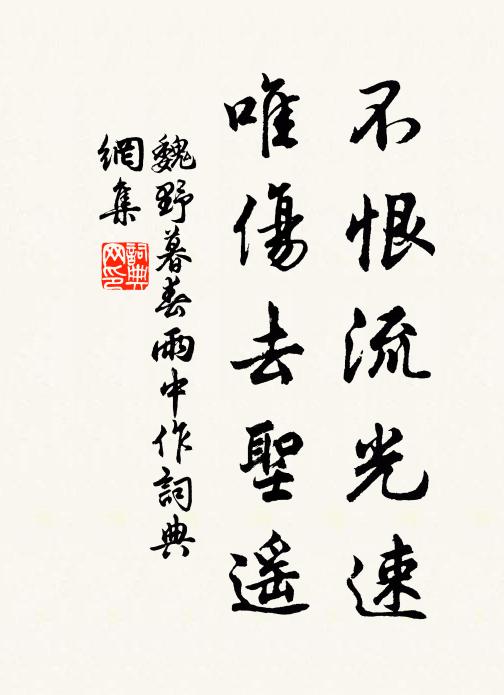 不恨流光速
唯傷去聖遥
魏野暮春雨中作詞典
網集
詞典
网印